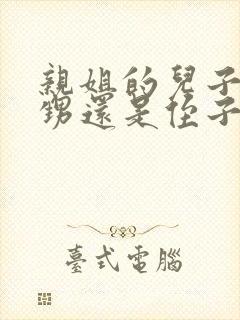 親姐的兒子
甥還是侄子
臺式電腦